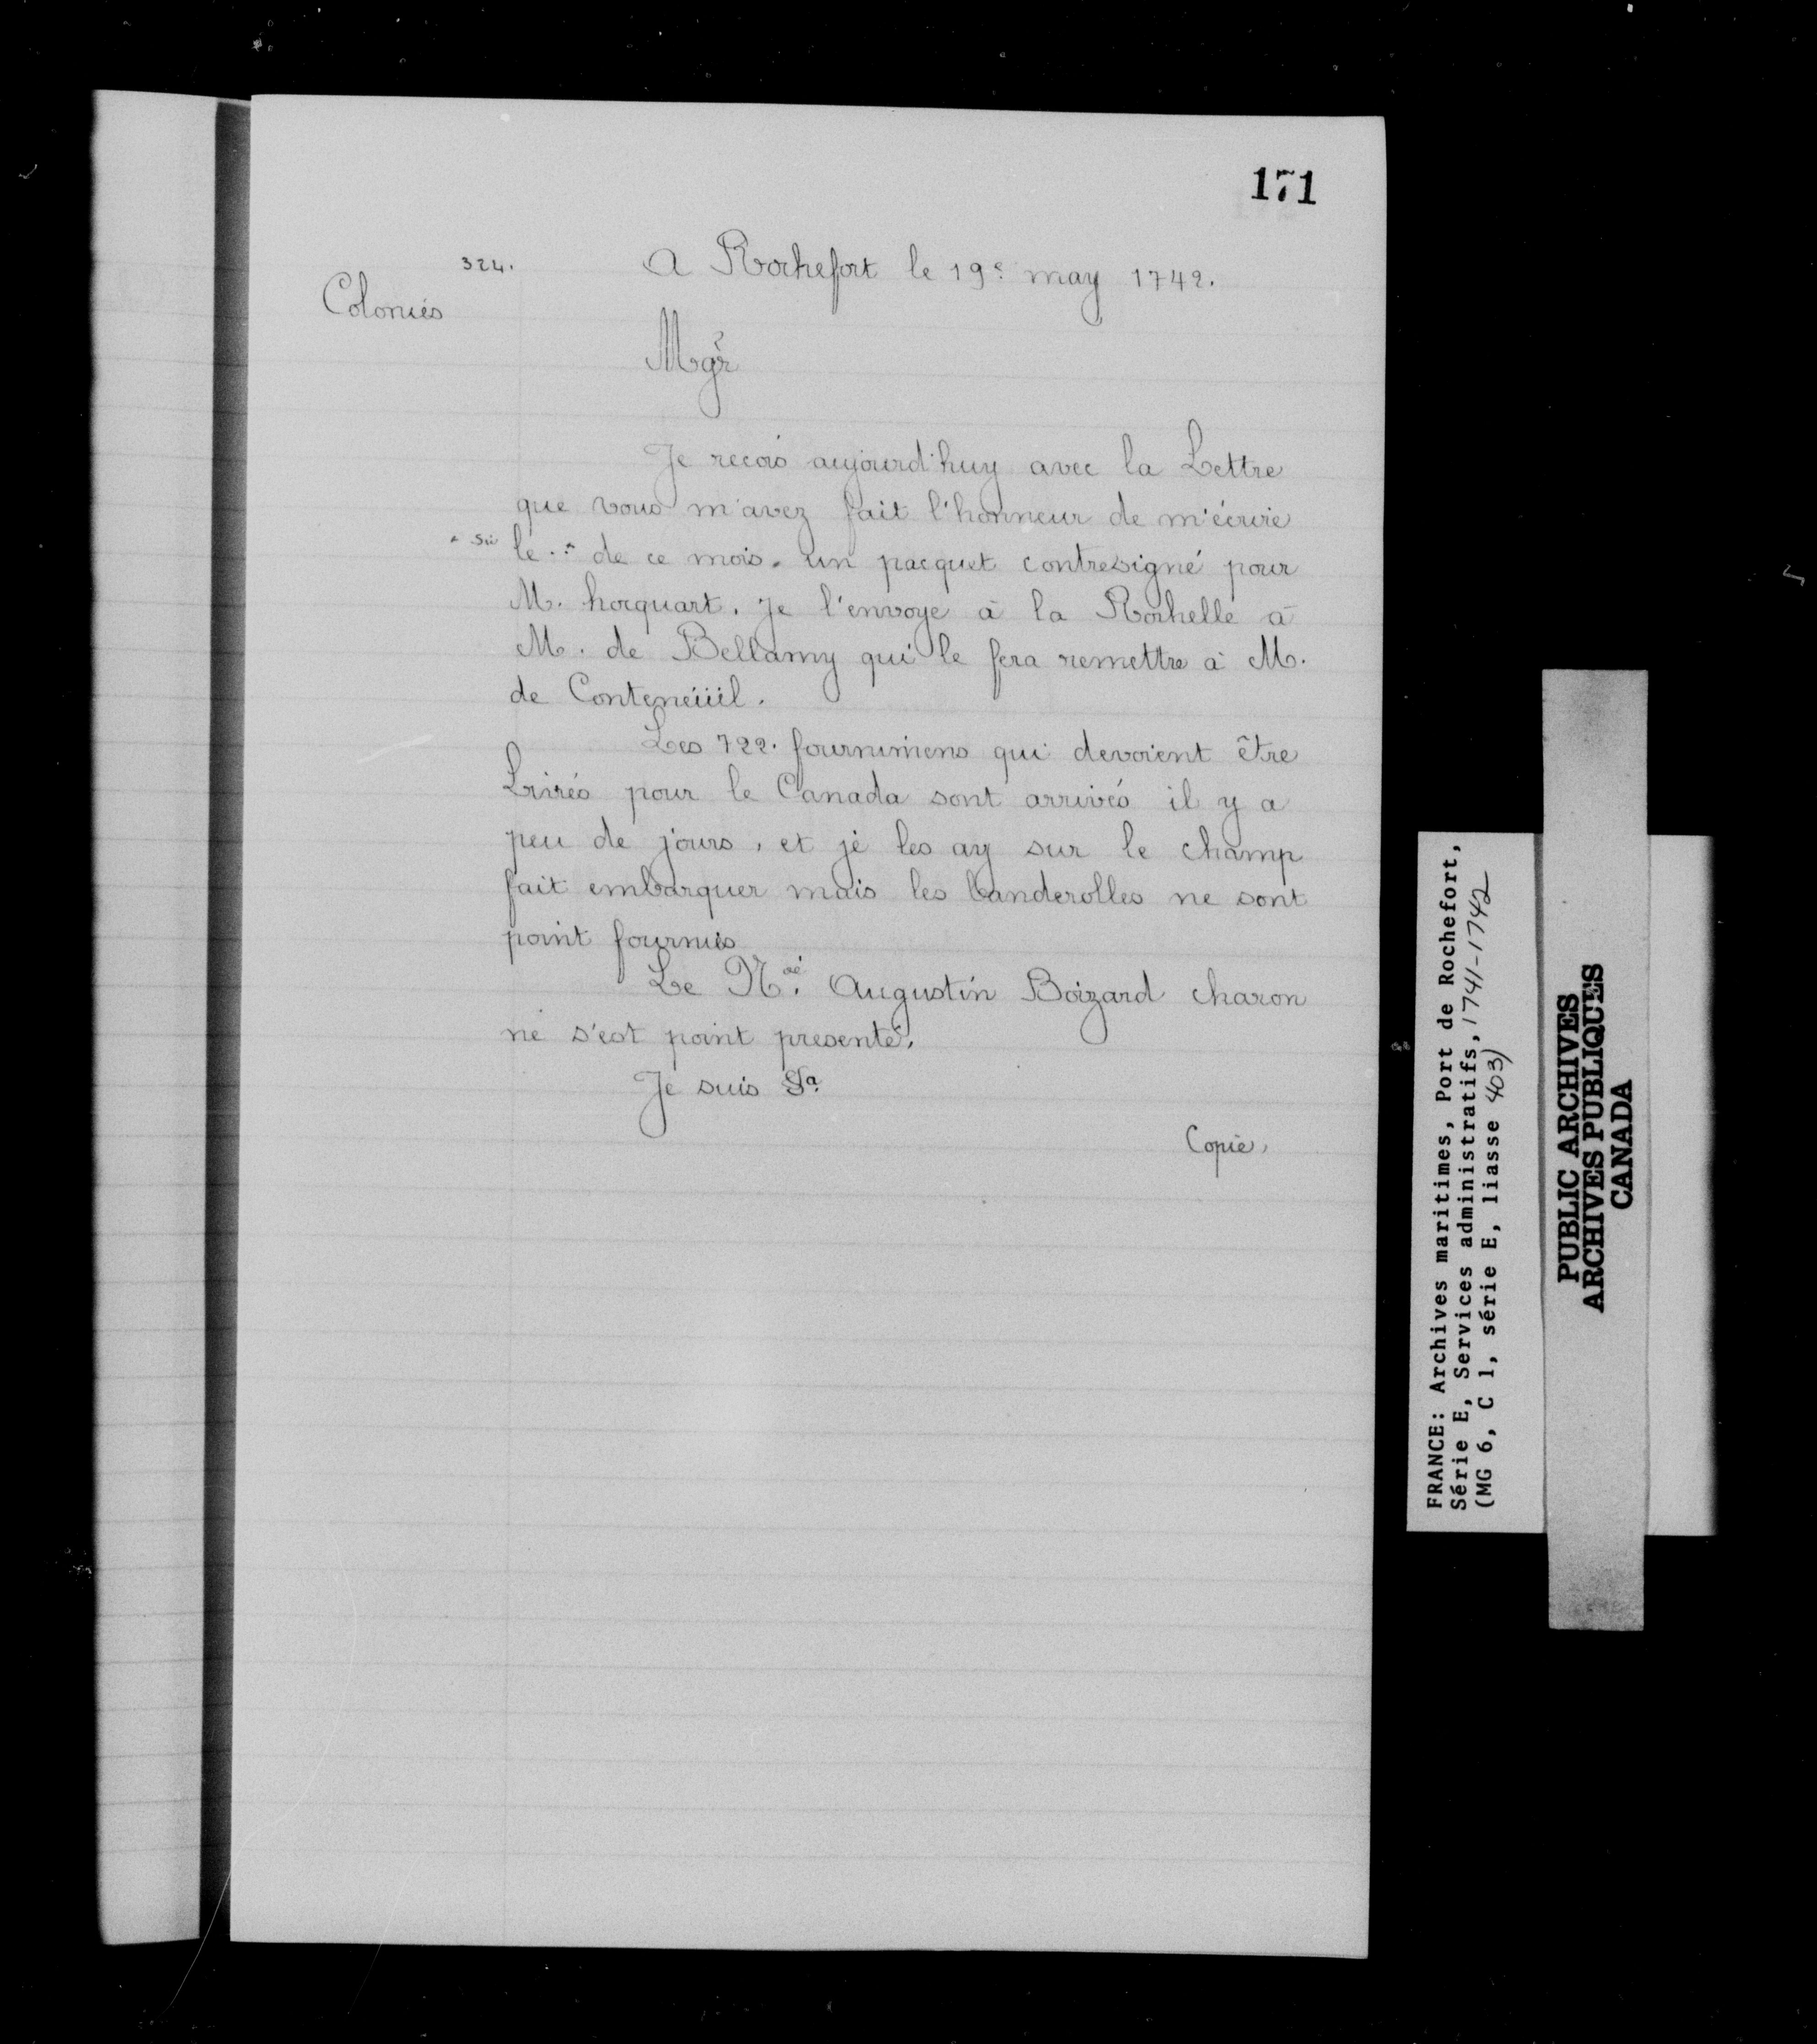 171
324. A Rochefort le 19e may 1742.
Colonies
Mgr
Je recois aujourd'huy avec la Lettre
que vous m'avez fait l'honneur de m'écrire
* Sic le..* de ce mois. un pacquet contresigné pour
M. hocquart. Je l'envoye à la Rochelle à
M. de Bellamy qui le fera remettre à M.
de Conteneüil.
Les 722. fournimens qui devoient être
Livrés pour le Canada sont arrivés il y a
peu de jours, et je les ay sur le champ
fait embarquer mais les banderolles ne sont
point fournies
Le Né. Augustin Boizard charon
ne s'est point presenté.
Je suis &a
Copie.
FRANCE: Archives maritimes, Port de Rochefort,
Série E, Services administratifs, 1741-1742
(MG 6, C 1, série E, liasse 403)
PUBLIC ARCHIVES
ARCHIVES PUBLIQUES
CANADA